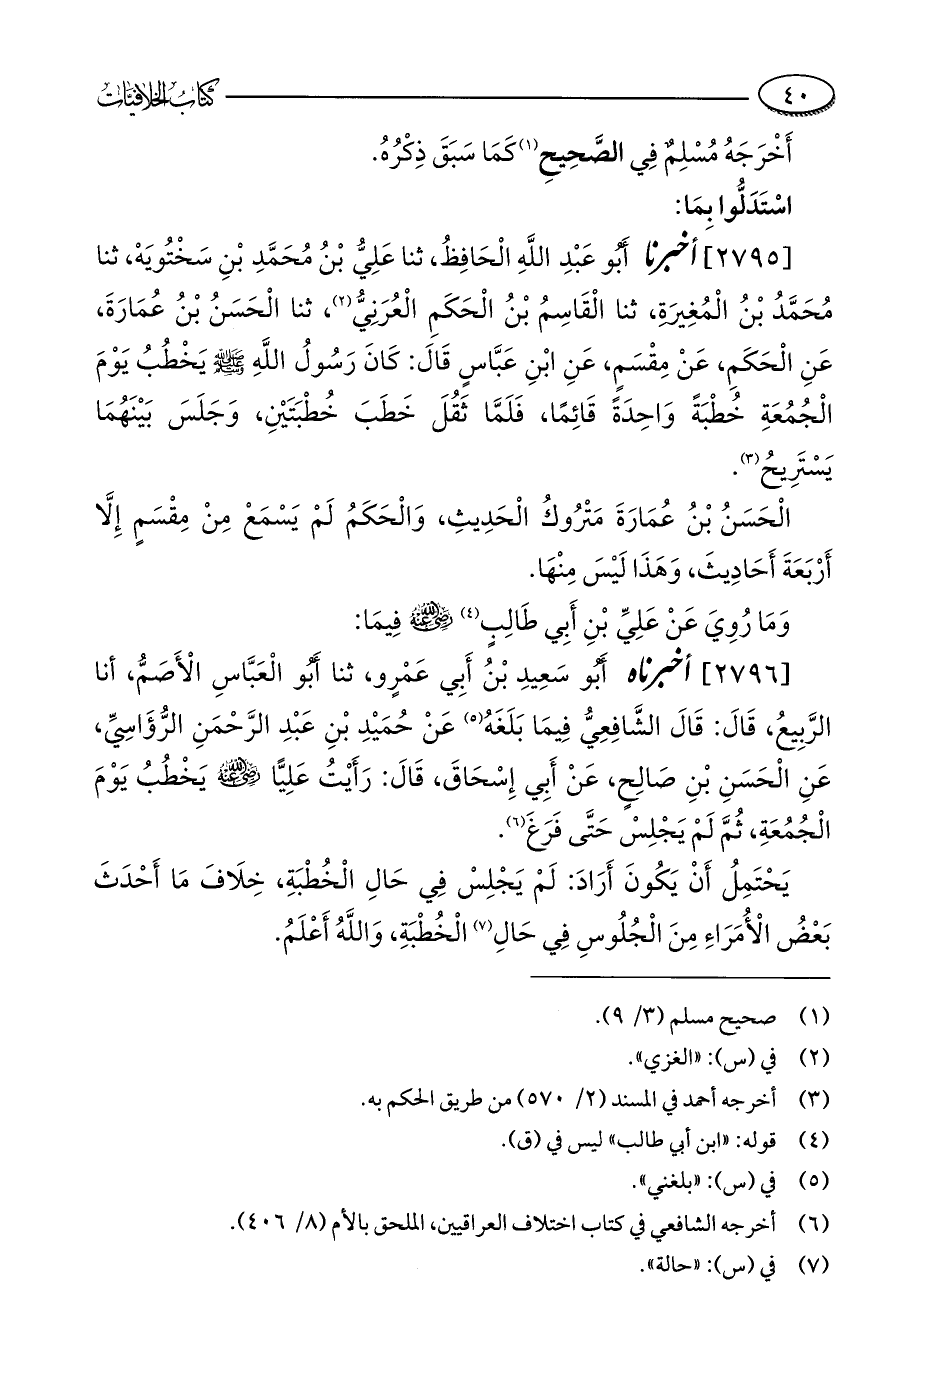 ٤٠ كتاب الخلافيات
أَخْرَجَهُ مُسْلِمٌ فِي الصَّحِيحِ(١) كَمَا سَبَقَ ذِكْرُهُ.
اسْتَدَلُّوا بِمَا:
[٢٧٩٥] أخبرنا أَبُو عَبْدِ اللَّهِ الْحَافِظُ، ثنا عَلِيُّ بْنُ مُحَمَّدِ بْنِ سَخْتُويَهْ، ثنا
مُحَمَّدُ بْنُ الْمُغِيرَةِ، ثنا الْقَاسِمُ بْنُ الْحَكَمِ الْعُرَنِيُّ(٢)، ثنا الْحَسَنُ بْنُ عُمَارَةَ،
عَنِ الْحَكَمِ، عَنْ مِقْسَمٍ، عَنِ ابْنِ عَبَّاسٍ قَالَ: كَانَ رَسُولُ اللَّهِ ﷺ يَخْطُبُ يَوْمَ
الْجُمُعَةِ خُطْبَةً وَاحِدَةً قَائِمًا، فَلَمَّا ثَقُلَ خَطَبَ خُطْبَتَيْنِ، وَجَلَسَ بَيْنَهُمَا
يَسْتَرِيحُ(٣).
الْحَسَنُ بْنُ عُمَارَةَ مَتْرُوكُ الْحَدِيثِ، وَالْحَكَمُ لَمْ يَسْمَعْ مِنْ مِقْسَمٍ إِلَّا
أَرْبَعَةَ أَحَادِيثَ، وَهَذَا لَيْسَ مِنْهَا.
وَمَا رُوِيَ عَنْ عَلِيِّ بْنِ أَبِي طَالِبٍ(٤) رضي الله عنه فِيمَا:
[٢٧٩٦] أخبرناه أَبُو سَعِيدِ بْنُ أَبِي عَمْرٍو، ثنا أَبُو الْعَبَّاسِ الْأَصَمُّ، أنا
الرَّبِيعُ، قَالَ: قَالَ الشَّافِعِيُّ فِيمَا بَلَغَهُ(٥) عَنْ حُمَيْدِ بْنِ عَبْدِ الرَّحْمَنِ الرُّؤَاسِيِّ،
عَنِ الْحَسَنِ بْنِ صَالِحٍ، عَنْ أَبِي إِسْحَاقَ، قَالَ: رَأَيْتُ عَلِيًّا رضي الله عنه يَخْطُبُ يَوْمَ
الْجُمُعَةِ، ثُمَّ لَمْ يَجْلِسْ حَتَّى فَرَغَ(٦).
يَحْتَمِلُ أَنْ يَكُونَ أَرَادَ: لَمْ يَجْلِسْ فِي حَالِ الْخُطْبَةِ، خِلَافَ مَا أَحْدَثَ
بَعْضُ الْأُمَرَاءِ مِنَ الْجُلُوسِ فِي حَالِ(٧) الْخُطْبَةِ، وَاللَّهُ أَعْلَمُ.
(١) صحيح مسلم (٣/ ٩).
(٢) في (س): «الغزي».
(٣) أخرجه أحمد في المسند (٢/ ٥٧٠) من طريق الحكم به.
(٤) قوله: «ابن أبي طالب» ليس في (ق).
(٥) في (س): «بلغني».
(٦) أخرجه الشافعي في كتاب اختلاف العراقيين، الملحق بالأم (٨/ ٤٠٦).
(٧) في (س): «حالة».